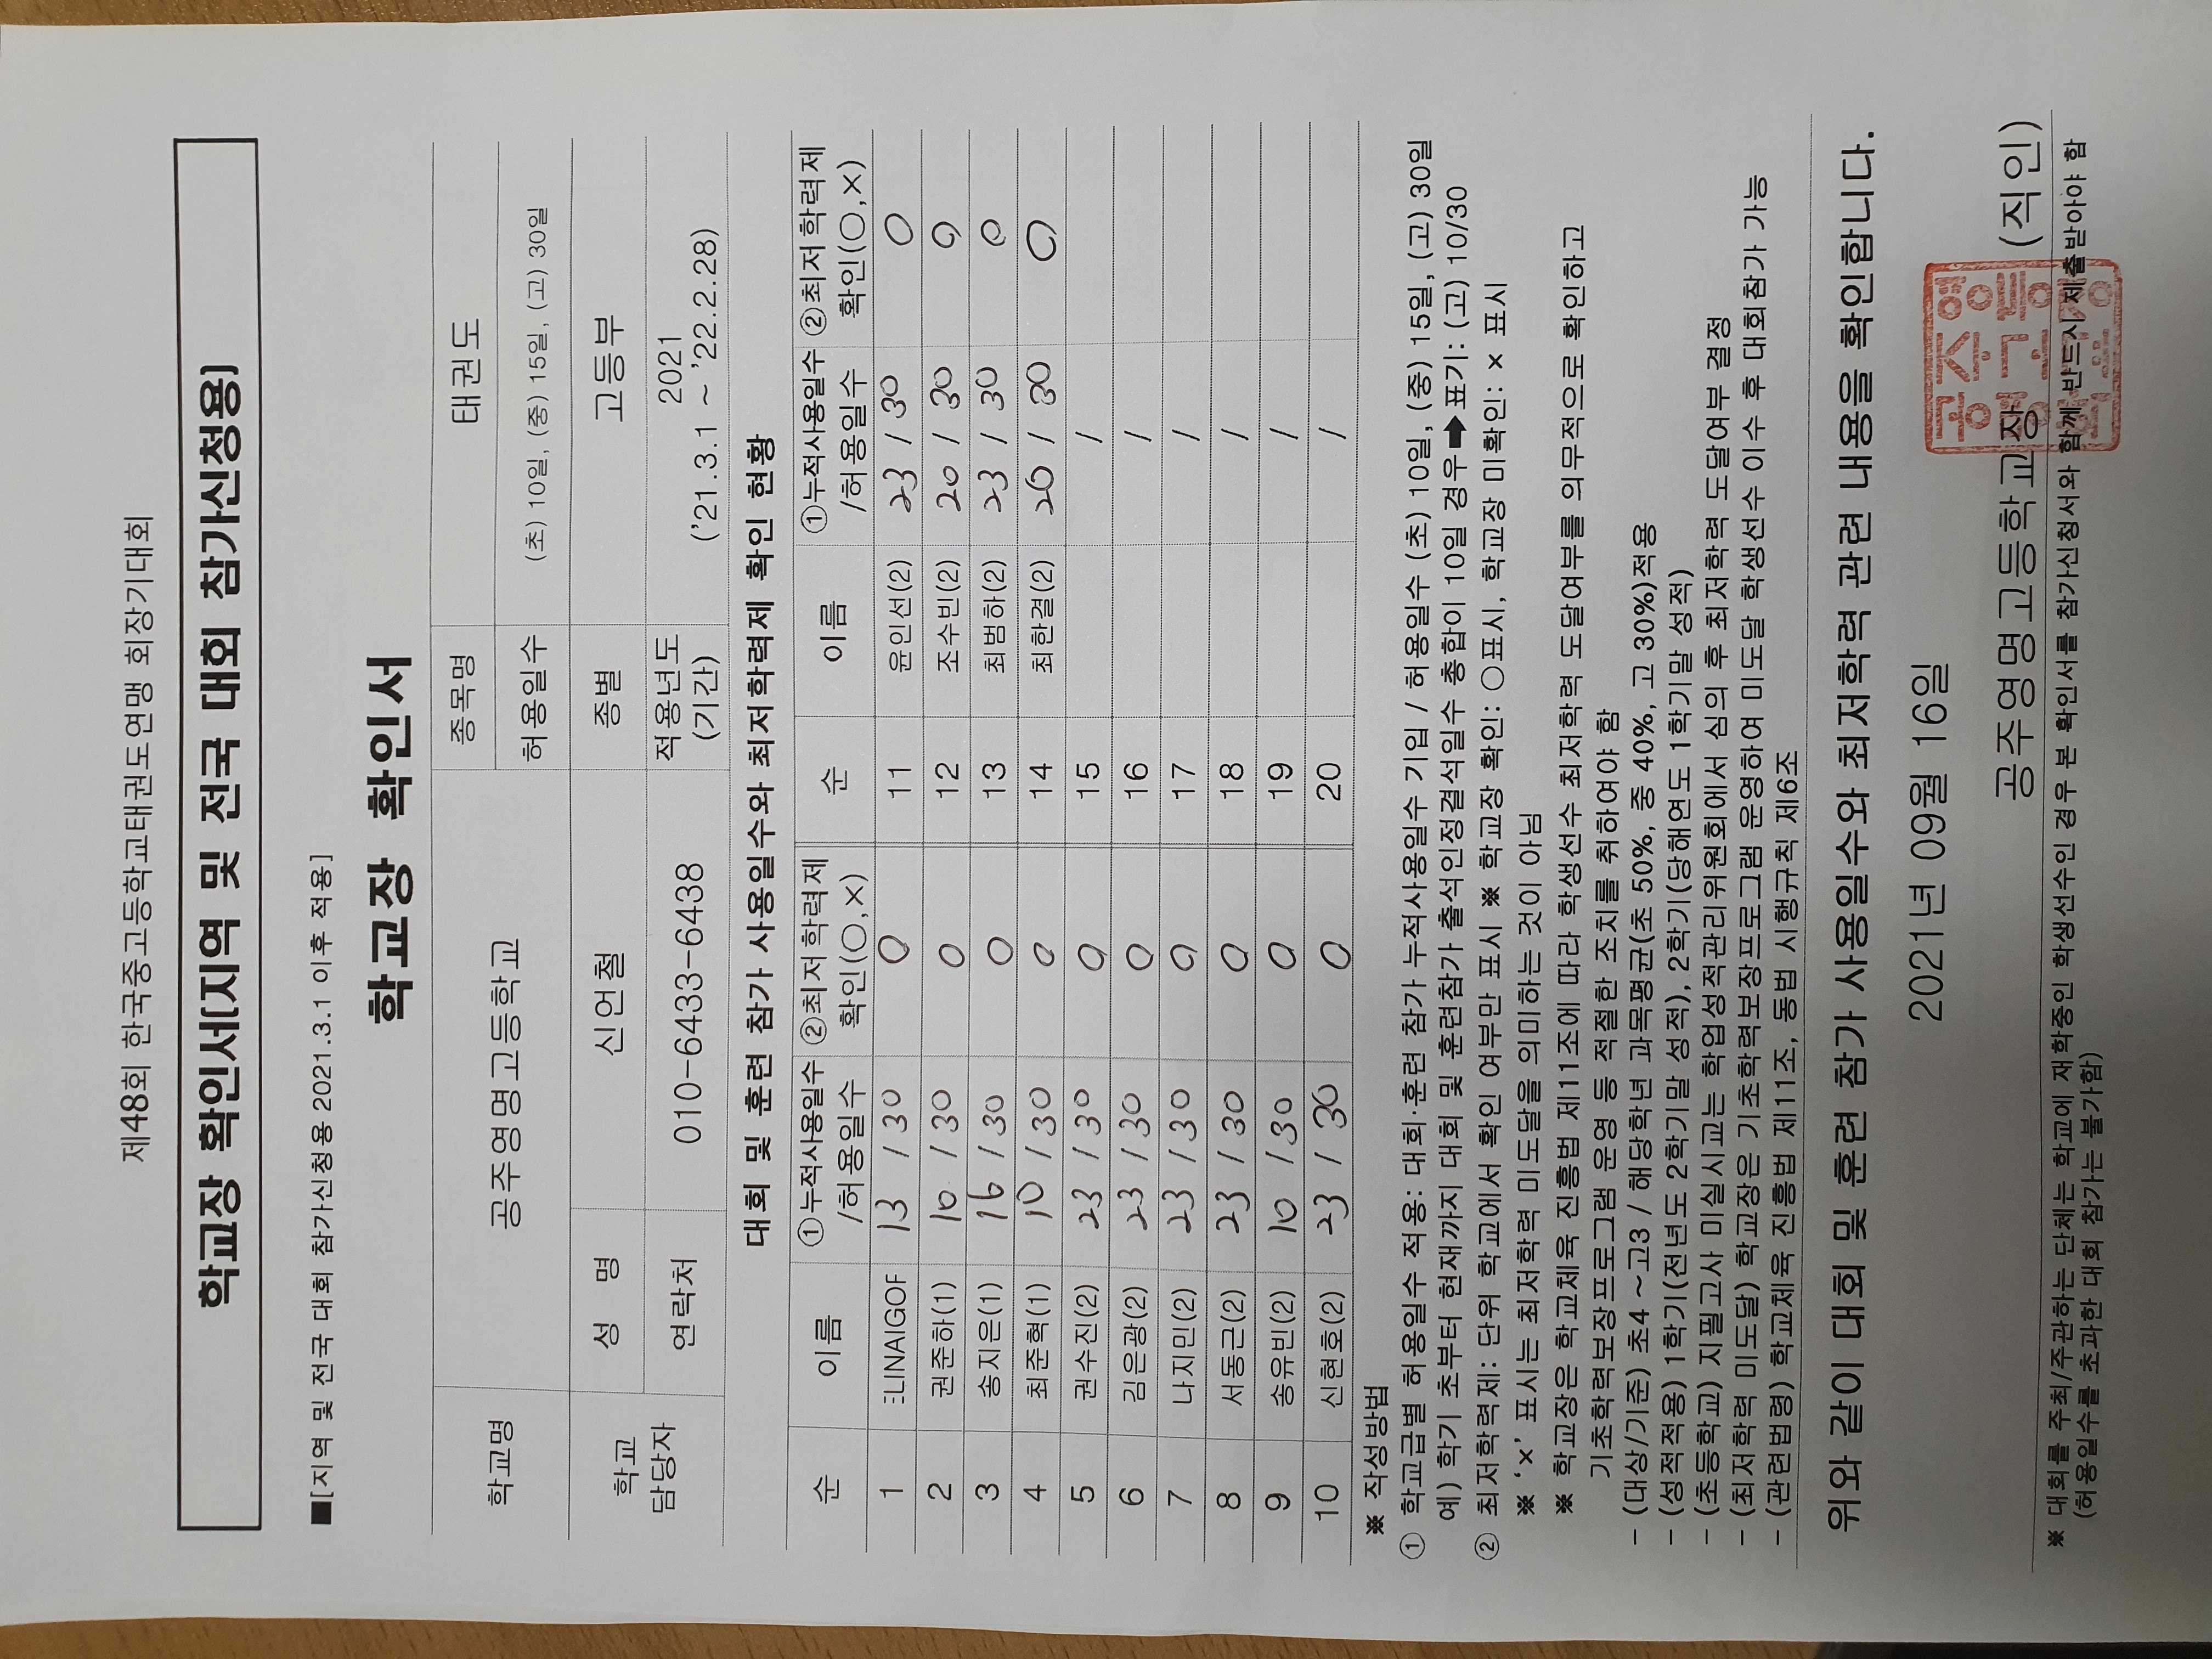 제48회 한국중고등학교태권도연맹 회장기대회
학교장 확인서[지역 및 전국 대회 참가신청용]
■[지역 및 전국 대회 참가신청용 2021.3.1 이후 적용]
학교장 확인서
학교명 공주영명고등학교 종목명 태권도
허용일수 (초) 10일, (중) 15일, (고) 30일
학교 담당자 성 명 신언철 종별 고등부
연락처 010-6433-6438 적용년도 (기간) 2021 ('21.3.1 ~ '22.2.28)
대회 및 훈련 참가 사용일수와 최저학력제 확인 현황
순 이름 ①누적사용일수 /허용일수 ②최저학력제 확인(○,×) 순 이름 ①누적사용일수 /허용일수 ②최저학력제 확인(○,×)
1 ELINAIGOF 13 / 30 ○ 11 윤인선(2) 23 / 30 ○
2 권준하(1) 10 / 30 ○ 12 조수빈(2) 20 / 30 ○
3 송지은(1) 16 / 30 ○ 13 최범하(2) 23 / 30 ○
4 최준혁(1) 10 / 30 ○ 14 최한결(2) 20 / 30 ○
5 권수진(2) 23 / 30 ○ 15 /
6 김은광(2) 23 / 30 ○ 16 /
7 나지민(2) 23 / 30 ○ 17 /
8 서동근(2) 23 / 30 ○ 18 /
9 송유빈(2) 10 / 30 ○ 19 /
10 신현호(2) 23 / 30 ○ 20 /
※ 작성방법
① 학교급별 허용일수 적용: 대회·훈련 참가 누적사용일수 기입 / 허용일수 (초) 10일, (중) 15일, (고) 30일
예) 학기 초부터 현재까지 대회 및 훈련참가 출석인정결석일수 총합이 10일 경우➡표기: (고) 10/30
② 최저학력제: 단위 학교에서 확인 여부만 표시 ※ 학교장 확인: ○표시, 학교장 미확인: × 표시
※ '×' 표시는 최저학력 미도달을 의미하는 것이 아님
※ 학교장은 학교체육 진흥법 제11조에 따라 학생선수 최저학력 도달여부를 의무적으로 확인하고
기초학력보장프로그램 운영 등 적절한 조치를 취하여야 함
- (대상/기준) 초4 ~고3 / 해당학년 과목평균(초 50%, 중 40%, 고 30%)적용
- (성적적용) 1학기(전년도 2학기말 성적), 2학기(당해연도 1학기말 성적)
- (초등학교) 지필고사 미실시교는 학업성적관리위원회에서 심의 후 최저학력 도달여부 결정
- (최저학력 미도달) 학교장은 기초학력보장프로그램 운영하여 미도달 학생선수 이수 후 대회참가 가능
- (관련법령) 학교체육 진흥법 제11조, 동법 시행규칙 제6조
위와 같이 대회 및 훈련 참가 사용일수와 최저학력 관련 내용을 확인합니다.
2021년 09월 16일
공주영명고등학교장 (직인)
※ 대회를 주최/주관하는 단체는 학교에 재학중인 학생선수인 경우 본 확인서를 참가신청서와 함께 반드시 제출받아야 함
(허용일수를 초과한 대회 참가는 불가함)